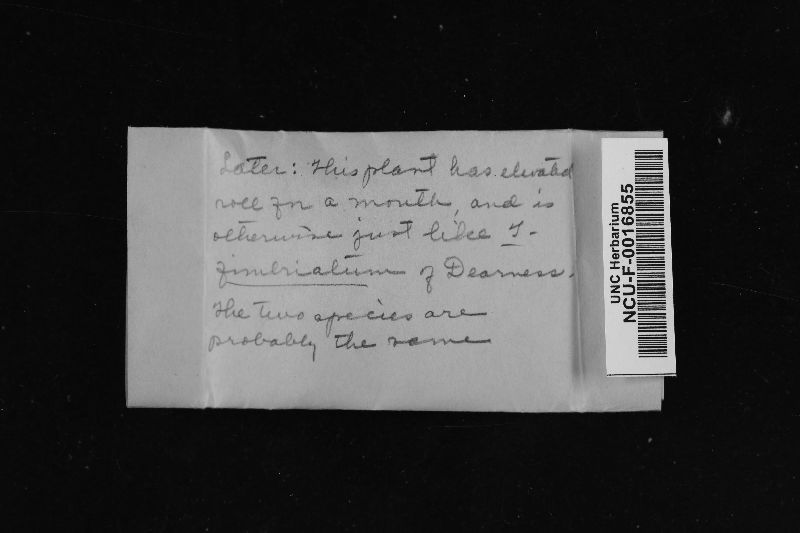 Later: This plant has elevated
roll for a mouth, and is
otherwise just like T-
fimbriatum of Dearness.
The two species are
probably the same
UNC Herbarium
NCU-F-0016855